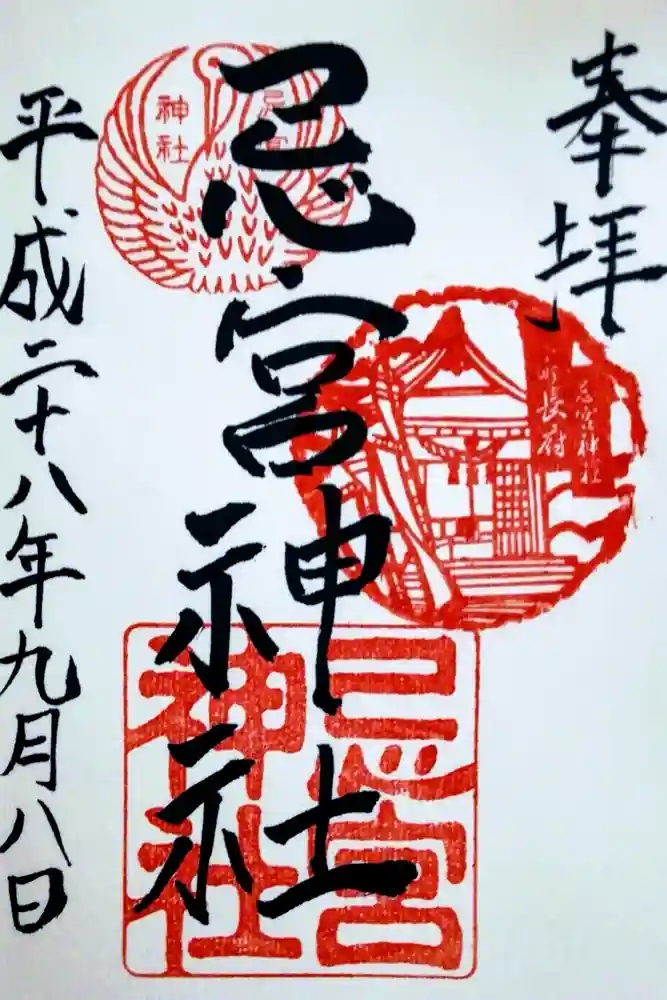 奉拝
長府
忌宮神社
忌宮神社
忌宮
神社
忌宮
神社
平成二十八年九月八日